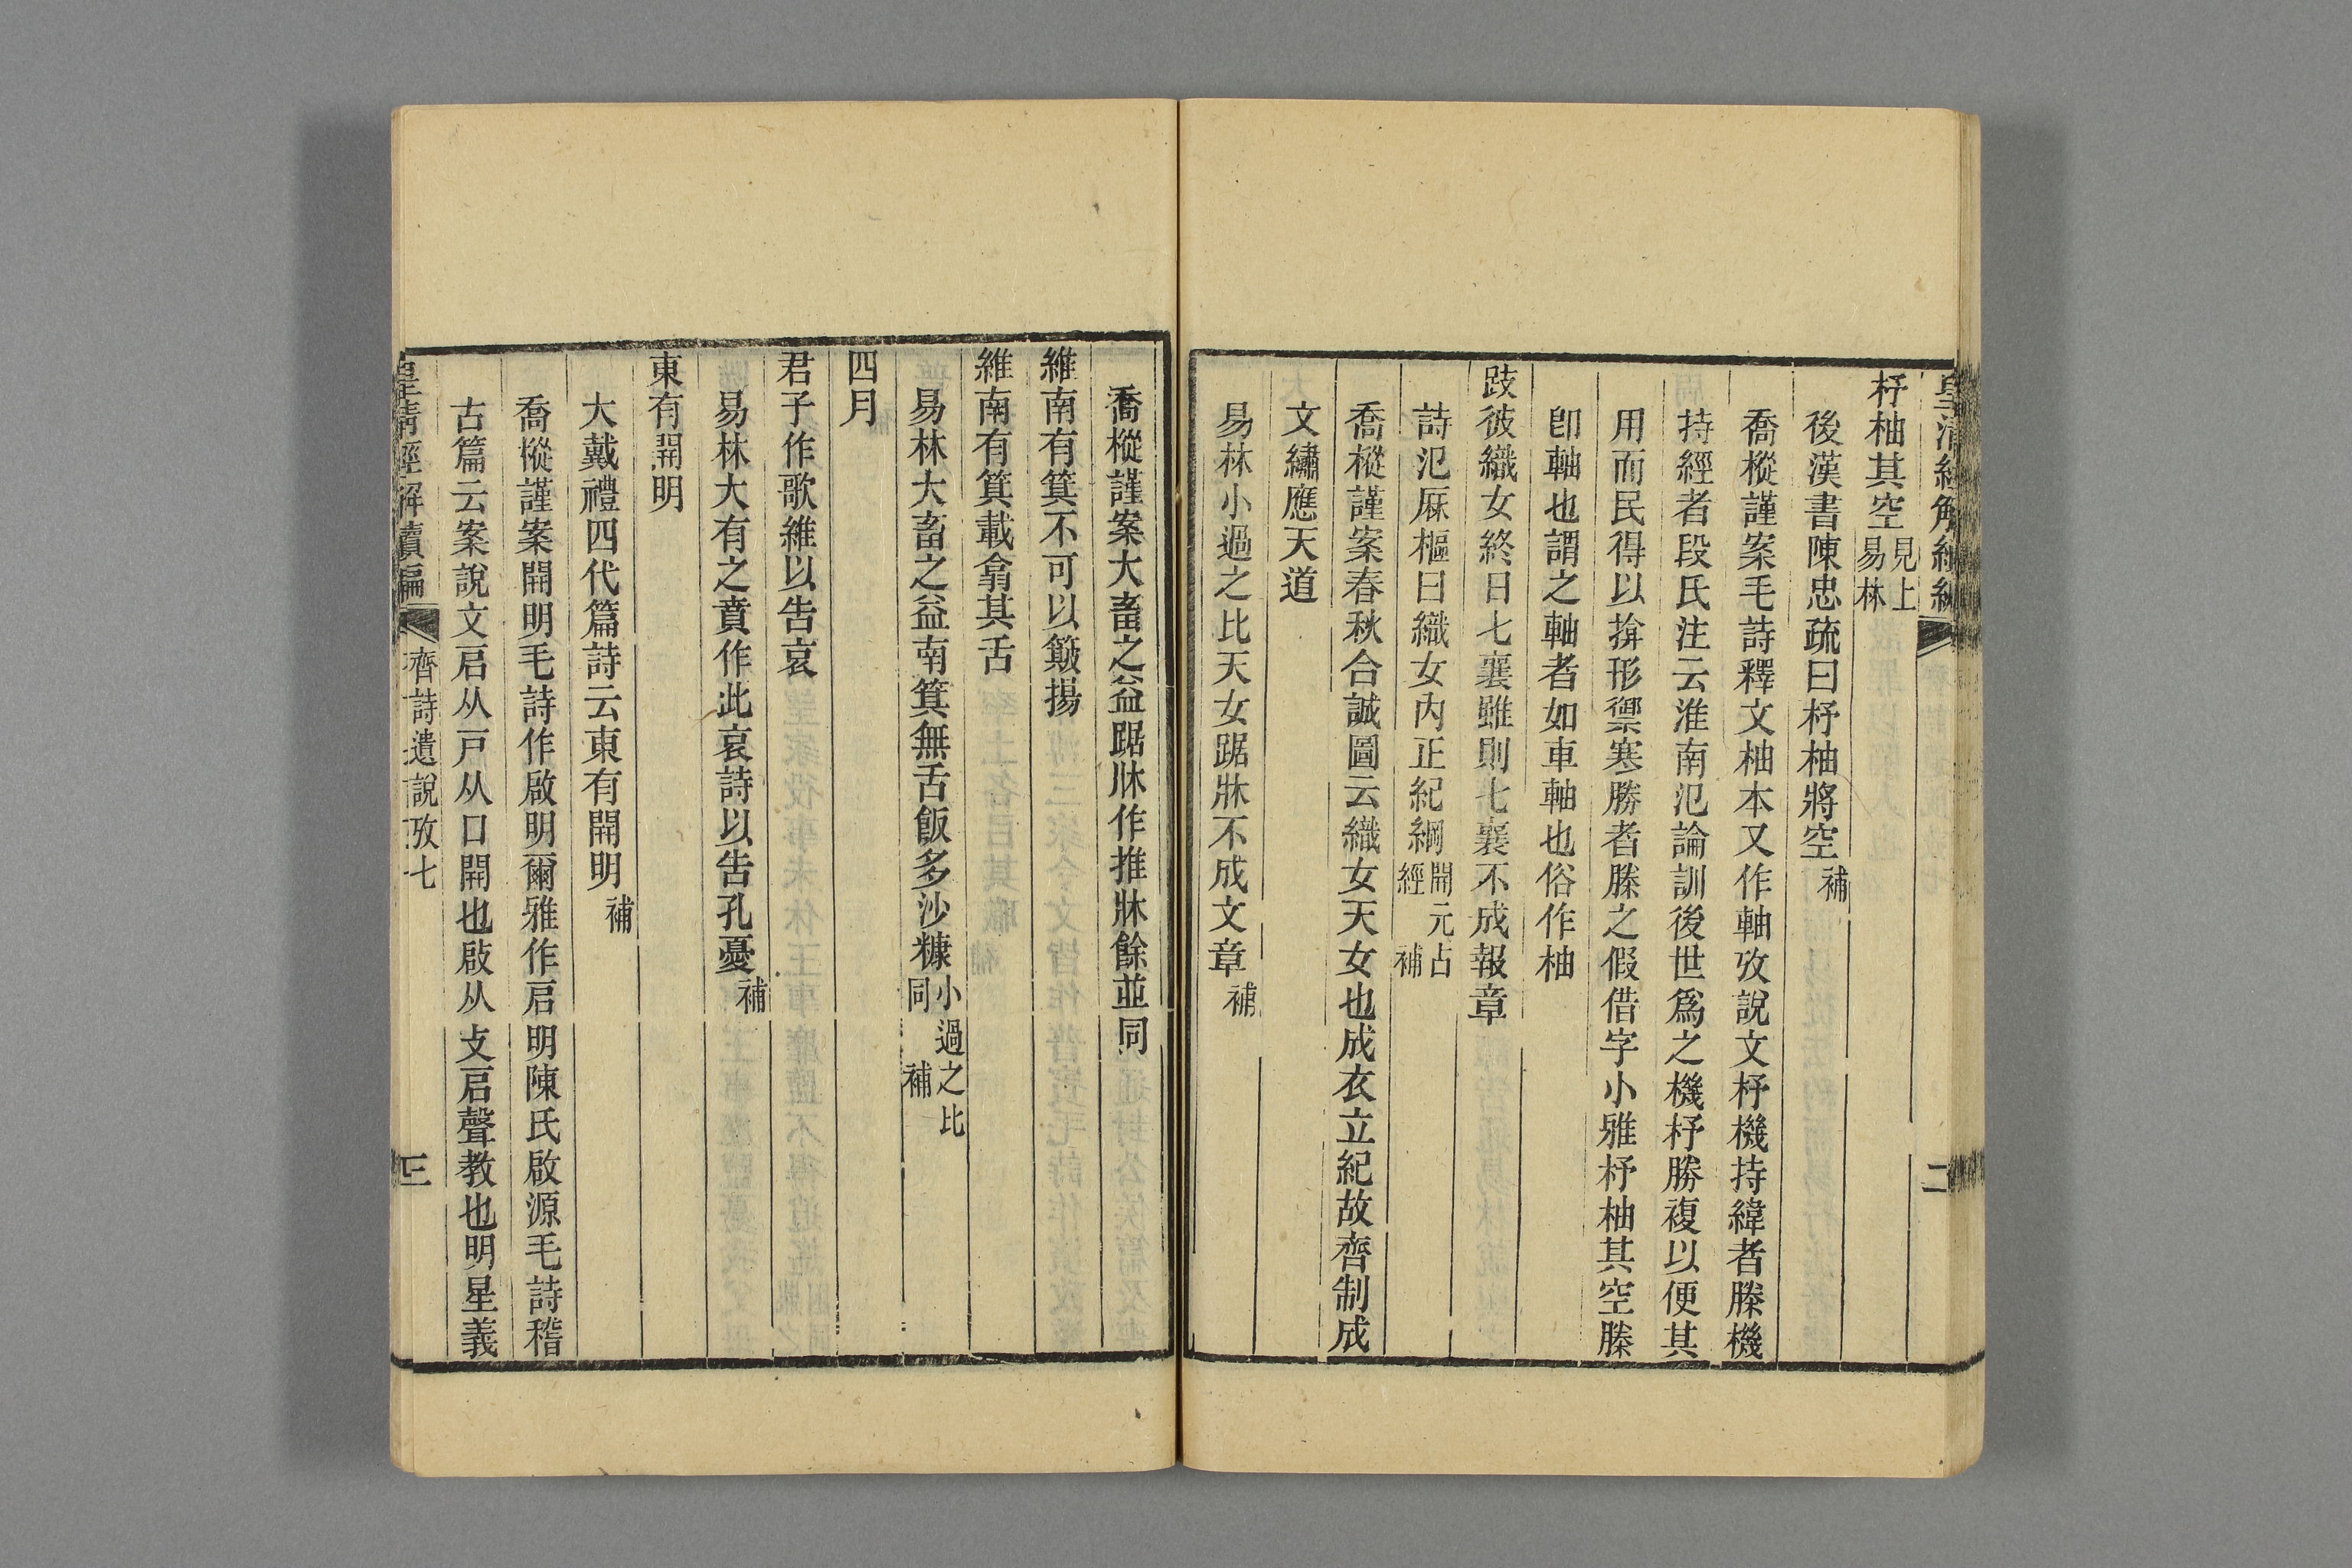 杼柚其空見上易林
後漢書陳忠疏曰杼柚將空補
喬樅謹案毛詩釋文柚本又作軸攷說文杼機持緯者縢機
持經者段氏注云淮南氾論訓後世爲之機杼勝複以便其
用而民得以揜形禦寒勝者縢之假借字小雅杼柚其空縢
卽軸也謂之軸者如車軸也俗作柚
跂彼織女終日七襄雖則七襄不成報章
詩氾厤樞曰織女內正紀綱開元占經補
喬樅謹案春秋合誠圖云織女天女也成衣立紀故齊制成
文繡應天道
易林小過之比天女踞牀不成文章補
二
喬樅謹案大畜之益踞牀作推牀餘並同
維南有箕不可以簸揚
維南有箕載翕其舌
易林大畜之益南箕無舌飯多沙糠小過之比同補
四月
君子作歌維以告哀
易林大有之賁作此哀詩以告孔憂補
東有開明
大戴禮四代篇詩云東有開明補
喬樅謹案開明毛詩作啟明爾雅作启明陳氏啟源毛詩稽
古篇云案說文启从戸从口開也啟从攴启聲教也明星義
皇淸經解續編
齊詩遺說攷七
三